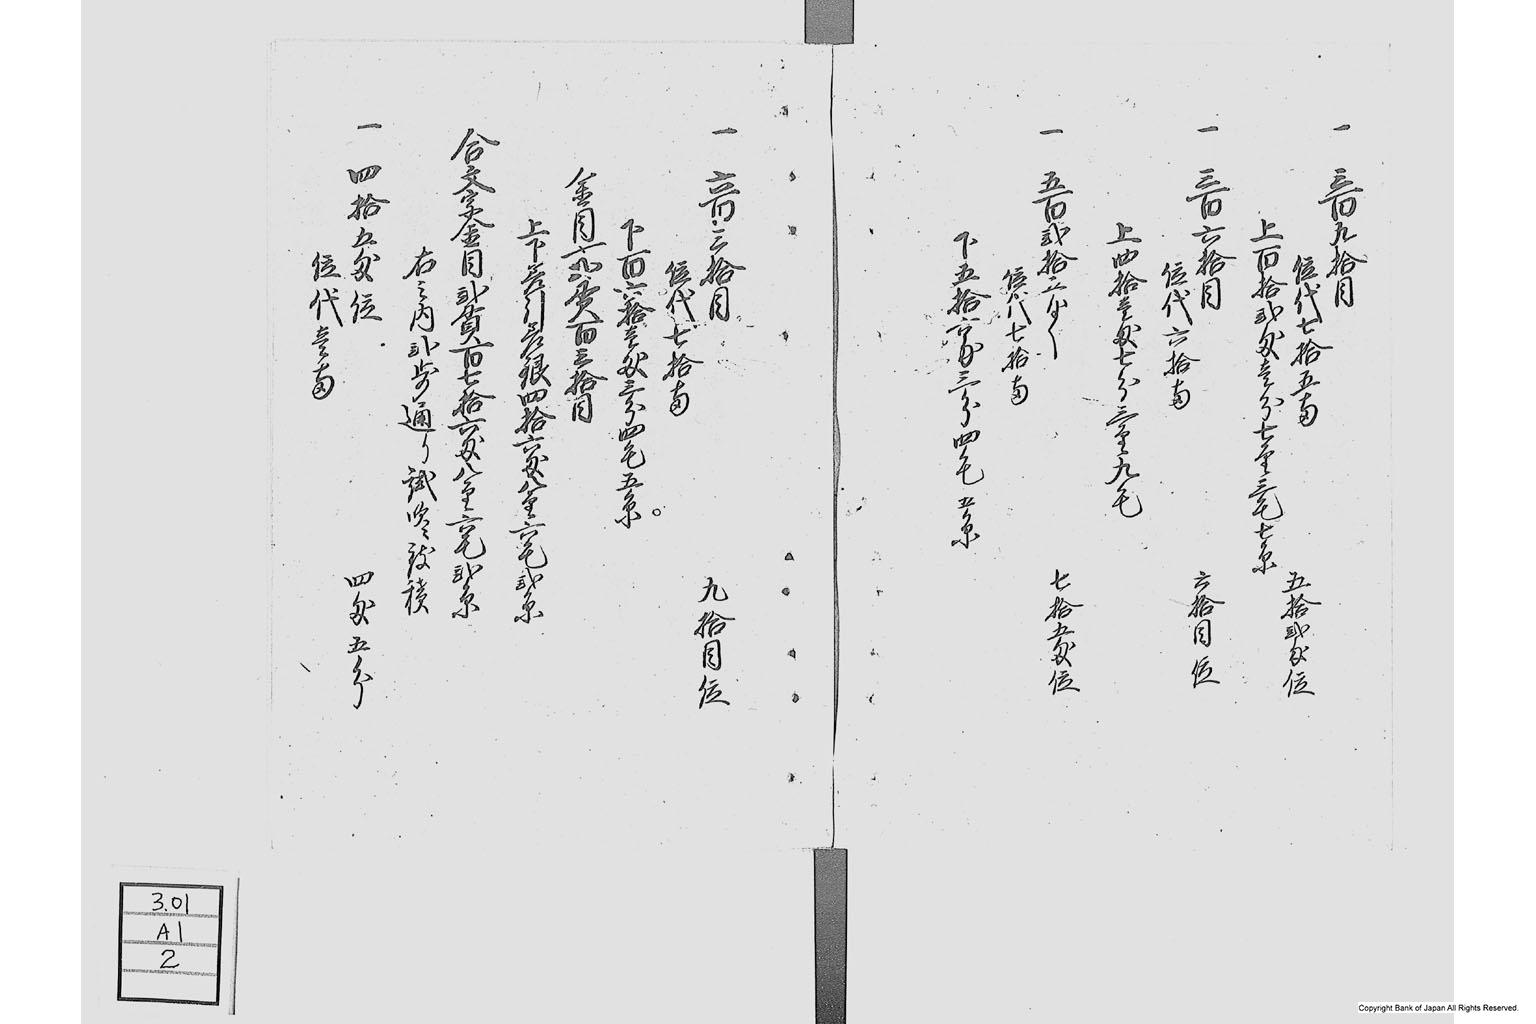 一 三百九拾目 五拾弐匁位
位代七拾五両
上百拾弐匁壱分七厘三毛七糸
一 三百六拾目 六拾目位
位代六拾両
上四拾壱匁七分三厘九毛
一 五百弐拾 七拾五匁位
位代七拾両
下五拾六匁三分四毛五糸
一 六百三拾目 九拾目位
位代七拾両
下百六拾壱匁三分四毛五糸
金目 貫百三拾目
上下差引差銀四拾六匁八厘六毛弐糸
合文字金目弐貫百七拾六匁八厘六毛弐糸
右之内弐歩通り試吹致積
一 四拾五匁位 四匁五分
位代壱両
3.01
A1
2
Copyright Bank of Japan All Rights Reserved.